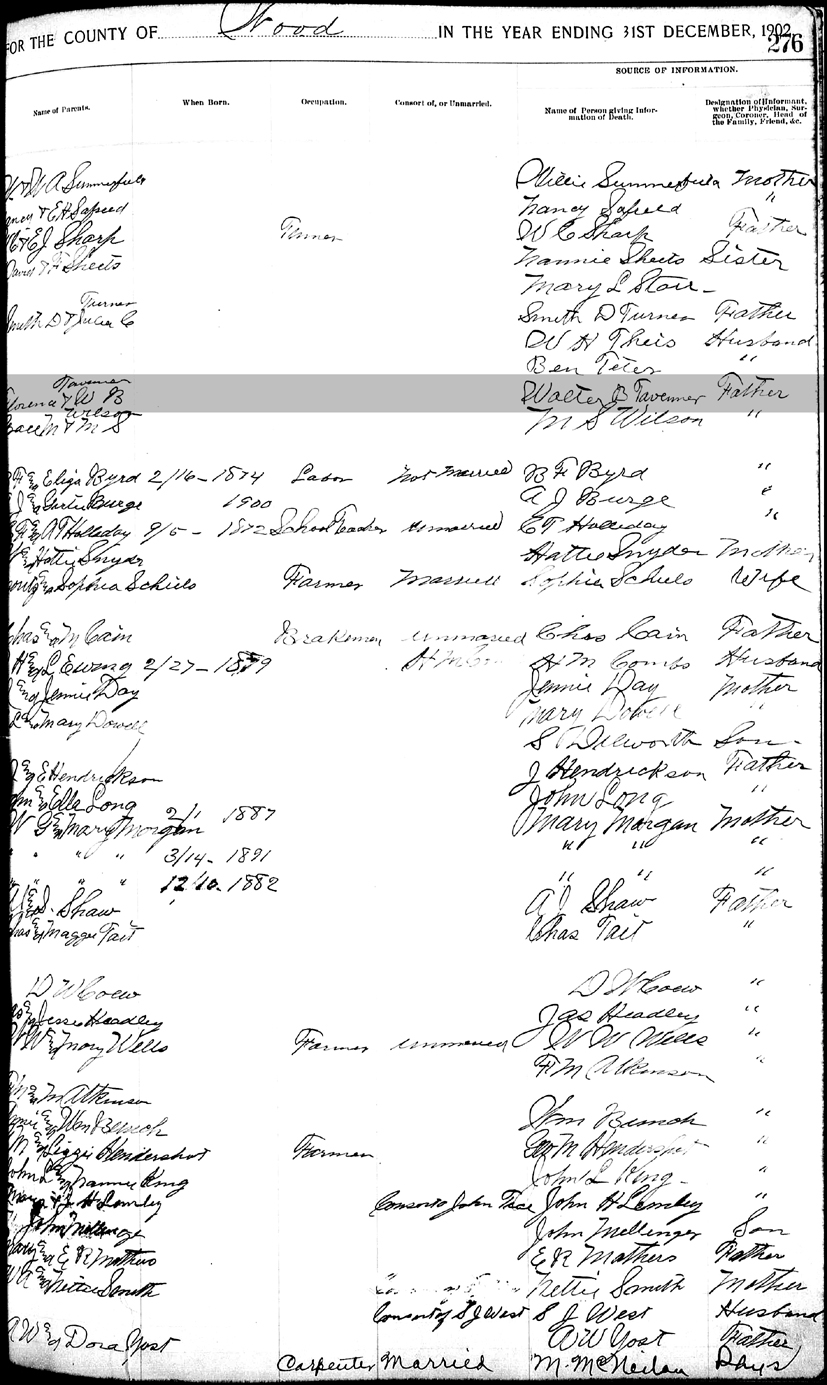 FOR THE COUNTY OF Wood IN THE YEAR ENDING 31ST DECEMBER, 1902
276
SOURCE OF INFORMATION.
Name of Parents. When Born. Occupation. Consort of, or Unmarried. Name of Person giving Information of Death. Designation of Informant, whether Physician, Surgeon, Coroner, Head of the Family, Friend, &c.
W A Summerfield Summerfield Mother
& E H Safreed Nancy Safreed "
& E J Sharp Farmer W C Sharp Father
David & F Sheets Nannie Sheets Sister
Mary L Starr
Turner
Smith D & Julia C Smith D Turner Father
W H Theis Husband
Ben Teter "
Tavenner
Florence & W B Walter B Tavenner Father
Wilson
M & M S M S Wilson "
& Eliza Byrd 2/16 - 1874 Labor Not Married B F Byrd "
& Gertie Burge 1900 A J Burge "
Holleday 9/5 - 1872 School Teacher Unmarried C T Holleday "
& Hattie Snyder Hattie Snyder Mother
& Sophia Schiels Farmer Married Sophia Schiels Wife
Chas & M Cain Brakeman unmarried Chas Cain Father
H & L Ewing 2/27 - 1879 H M H M Combs Husband
& Jennie Day Jennie Day Mother
& Mary Dowell Mary Dowell "
S Dilworth Son
J & E Hendrickson J Hendrickson Father
John & Ella Long John Long "
W G & Mary Morgan 2/1 1887 Mary Morgan Mother
" " " 3/14 - 1891 " " "
" " " 12/10 - 1882 " " "
A J & S. Shaw A J Shaw Father
Chas & Maggie Tait Chas Tait "
D W Coew D W Coew "
Jas & Jessie Headley Jas Headley "
W W & Mary Wells Farmer unmarried W W Wells "
F M Atkinson "
F M & M Atkinson
& Wm Bunch Wm Bunch "
& Lizzie Hendershot Farmer Geo M Hendershot "
John L & Nannie King John L King "
Mary & J H Lemley Consort John John H Lemley "
John John Mellenger Son
& E R Mathers E R Mathers Father
W A & Nettie Smith Nettie Smith Mother
Consort of S J West S J West Husband
A W & Dora Yost A W Yost Father
Carpenter Married M. McNeilan